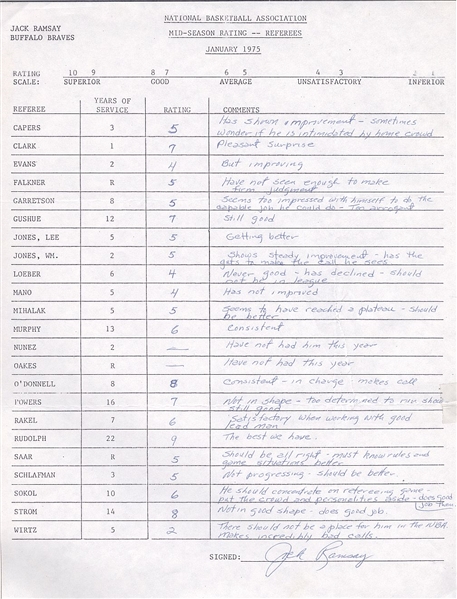 NATIONAL BASKETBALL ASSOCIATION
JACK RAMSAY
BUFFALO BRAVES
MID-SEASON RATING -- REFEREES
JANUARY 1975
RATING 10 9 8 7 6 5 4 3 2 1
SCALE: SUPERIOR GOOD AVERAGE UNSATISFACTORY INFERIOR
REFEREE YEARS OF SERVICE RATING COMMENTS
CAPERS 3 5 Has shown improvement - sometimes
wonder if he is intimidated by home crowd
CLARK 1 7 Pleasant surprise
EVANS 2 4 But improving
FALKNER R 5 Have not seen enough to make
firm judgment
GARRETSON 8 5 Seems too impressed with himself to do the
capable job he could do - Too arrogant
GUSHUE 12 7 Still good
JONES, LEE 5 5 Getting better
JONES, WM. 2 5 Shows steady improvement - has the
guts to make the call he sees
LOEBER 6 4 Never good - has declined - should
not be in league
MANO 5 4 Has not improved
MIHALAK 5 5 Seems to have reached a plateau - should
be better
MURPHY 13 6 Consistent
NUNEZ 2 — Have not had him this year
OAKES R — Have not had this year
O'DONNELL 8 8 Consistent - in charge - makes call
POWERS 16 7 Not in shape - too determined to run show
still good
RAKEL 7 6 Satisfactory when working with good
lead man
RUDOLPH 22 9 The best we have.
SAAR R 5 Should be all right - must know rules and
game situations better
SCHLAFMAN 3 5 Not progressing - should be better
SOKOL 10 6 He should concentrate on refereeing game -
put the crowd and personalities aside - does good
job then.
STROM 14 8 Not in good shape - does good job.
WIRTZ 5 2 There should not be a place for him in the NBA.
Makes incredibly bad calls.
SIGNED: Jack Ramsay